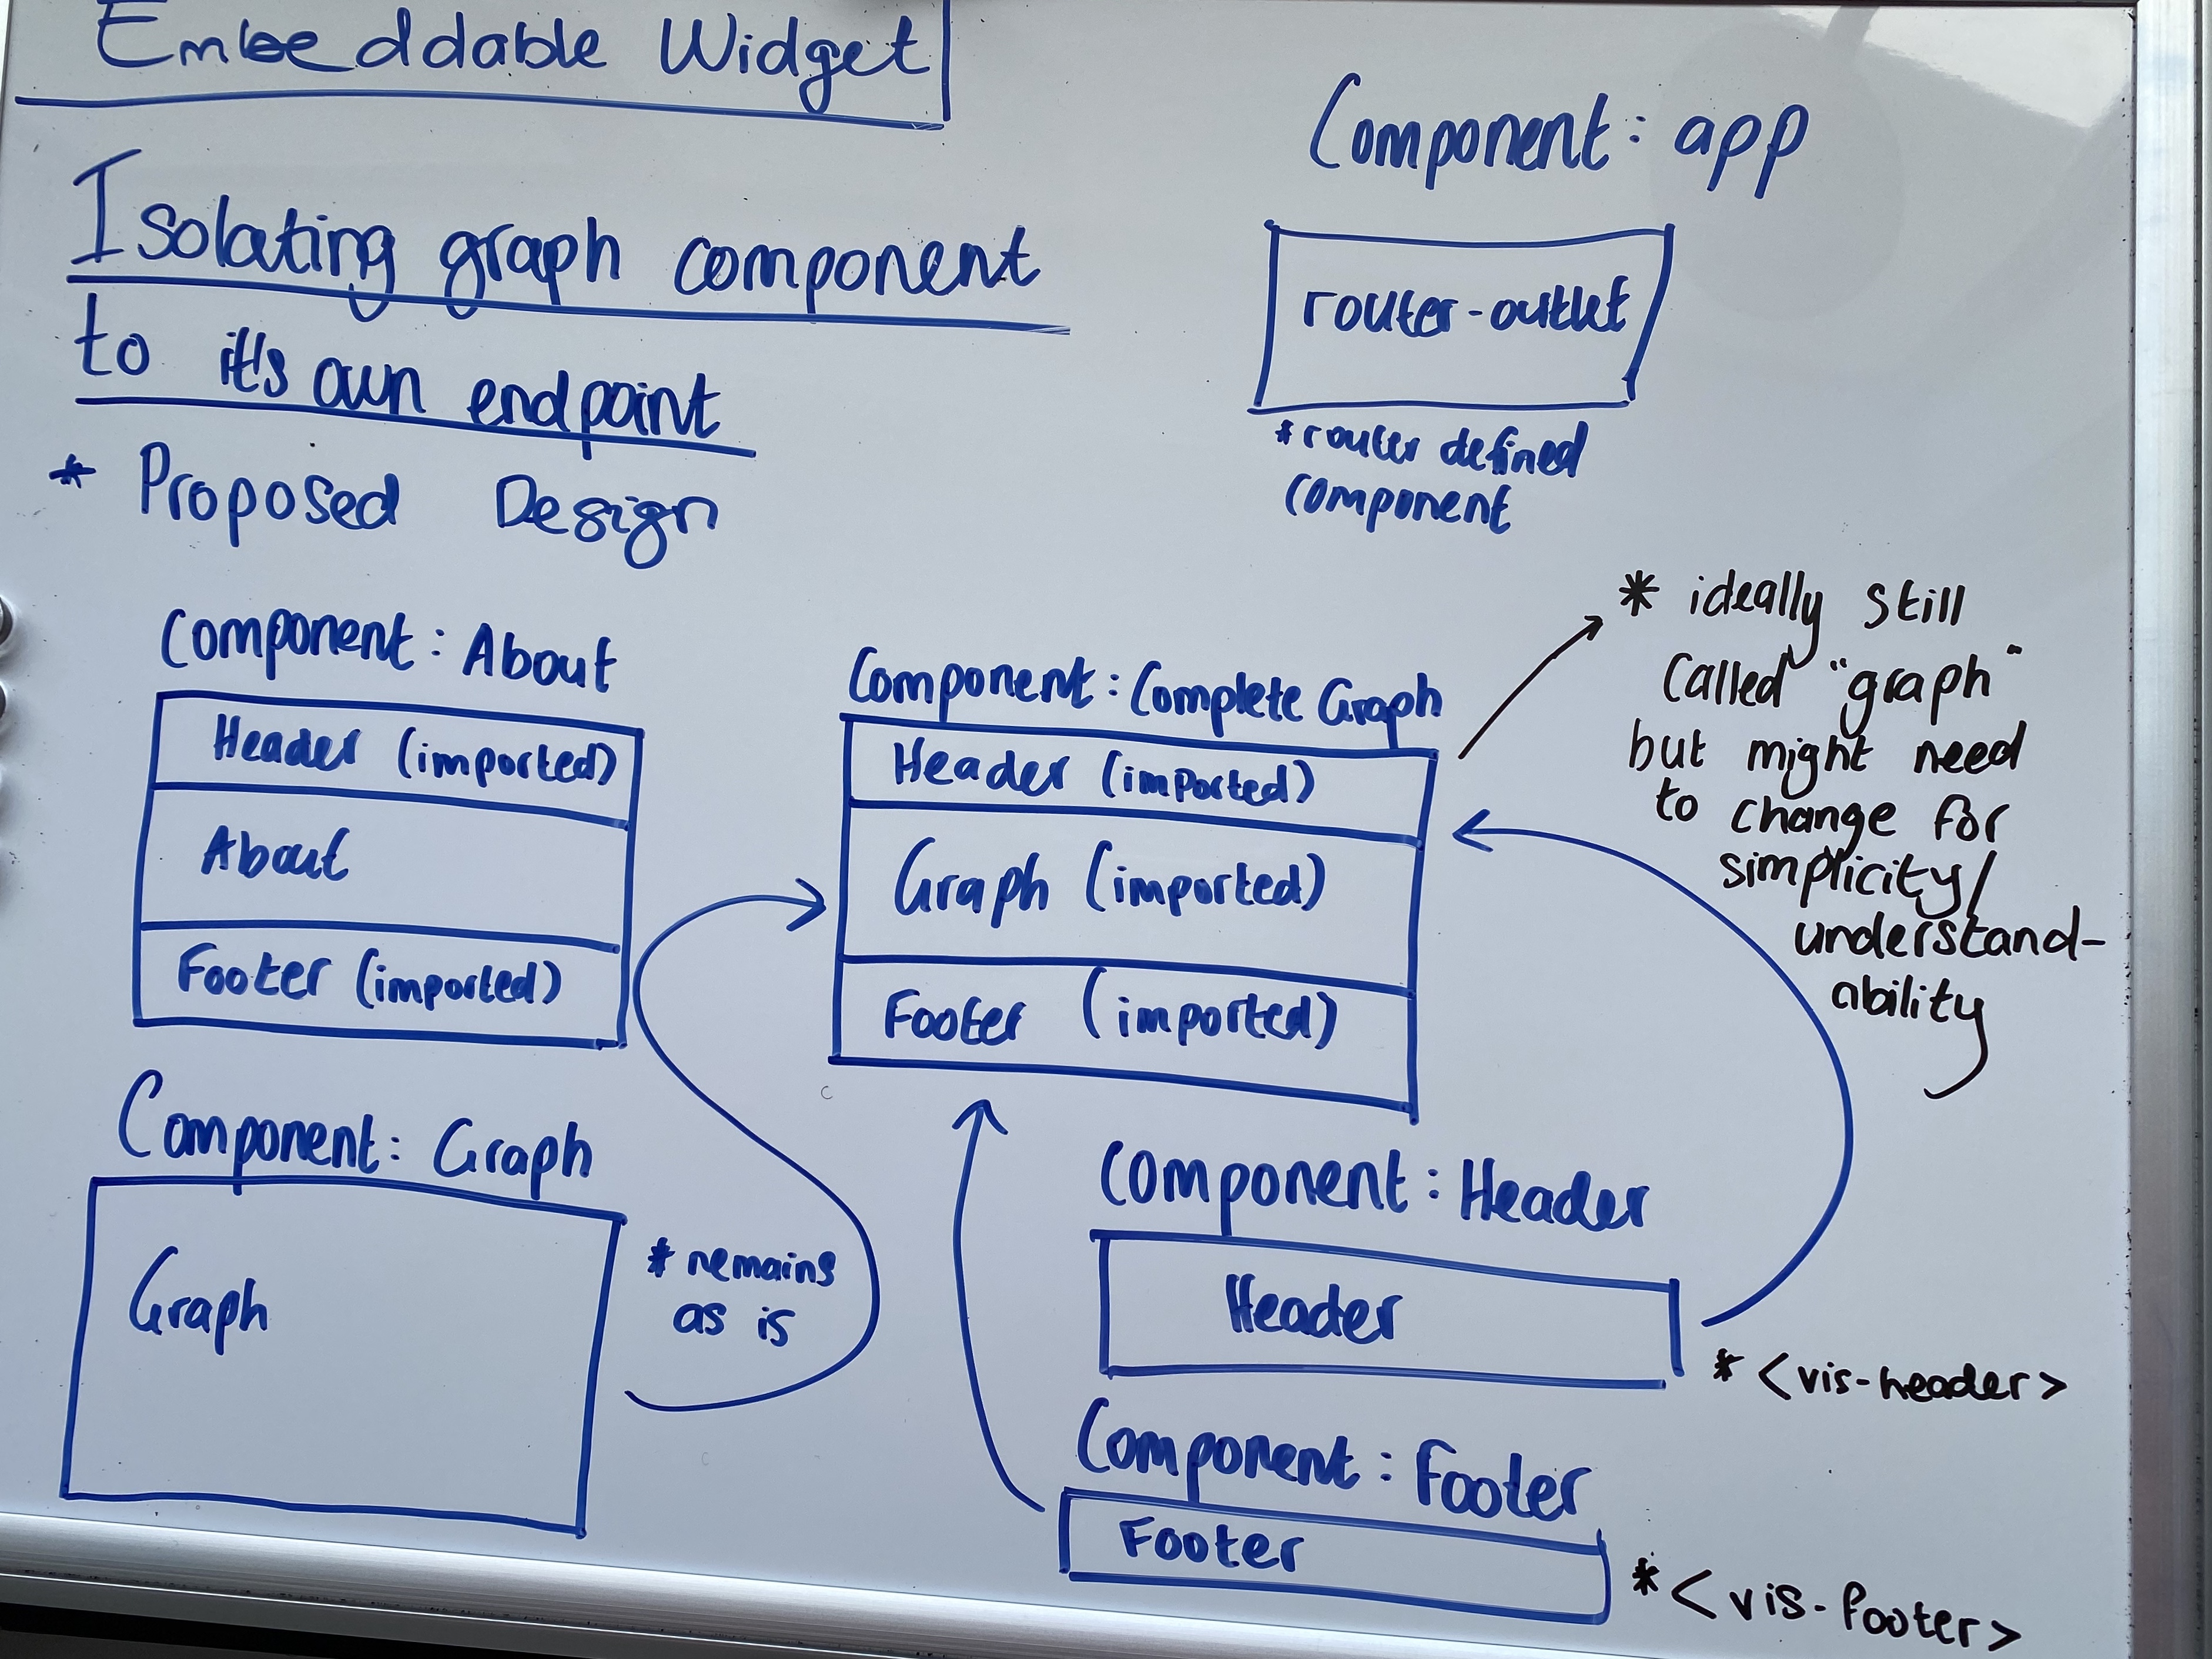 Embeddable Widget
Isolating graph component
to it's own endpoint
* Proposed Design
Component: app
router-outlet
*router defined
component
Component: About
Header (imported)
About
Footer (imported)
Component: Complete Graph
Header (imported)
Graph (imported)
Footer (imported)
* ideally still
called "graph"
but might need
to change for
simplicity/
understand-
ability
Component: Graph
Graph
* remains
as is
Component: Header
Header
* <vis-header>
Component: Footer
Footer
* <vis-footer>